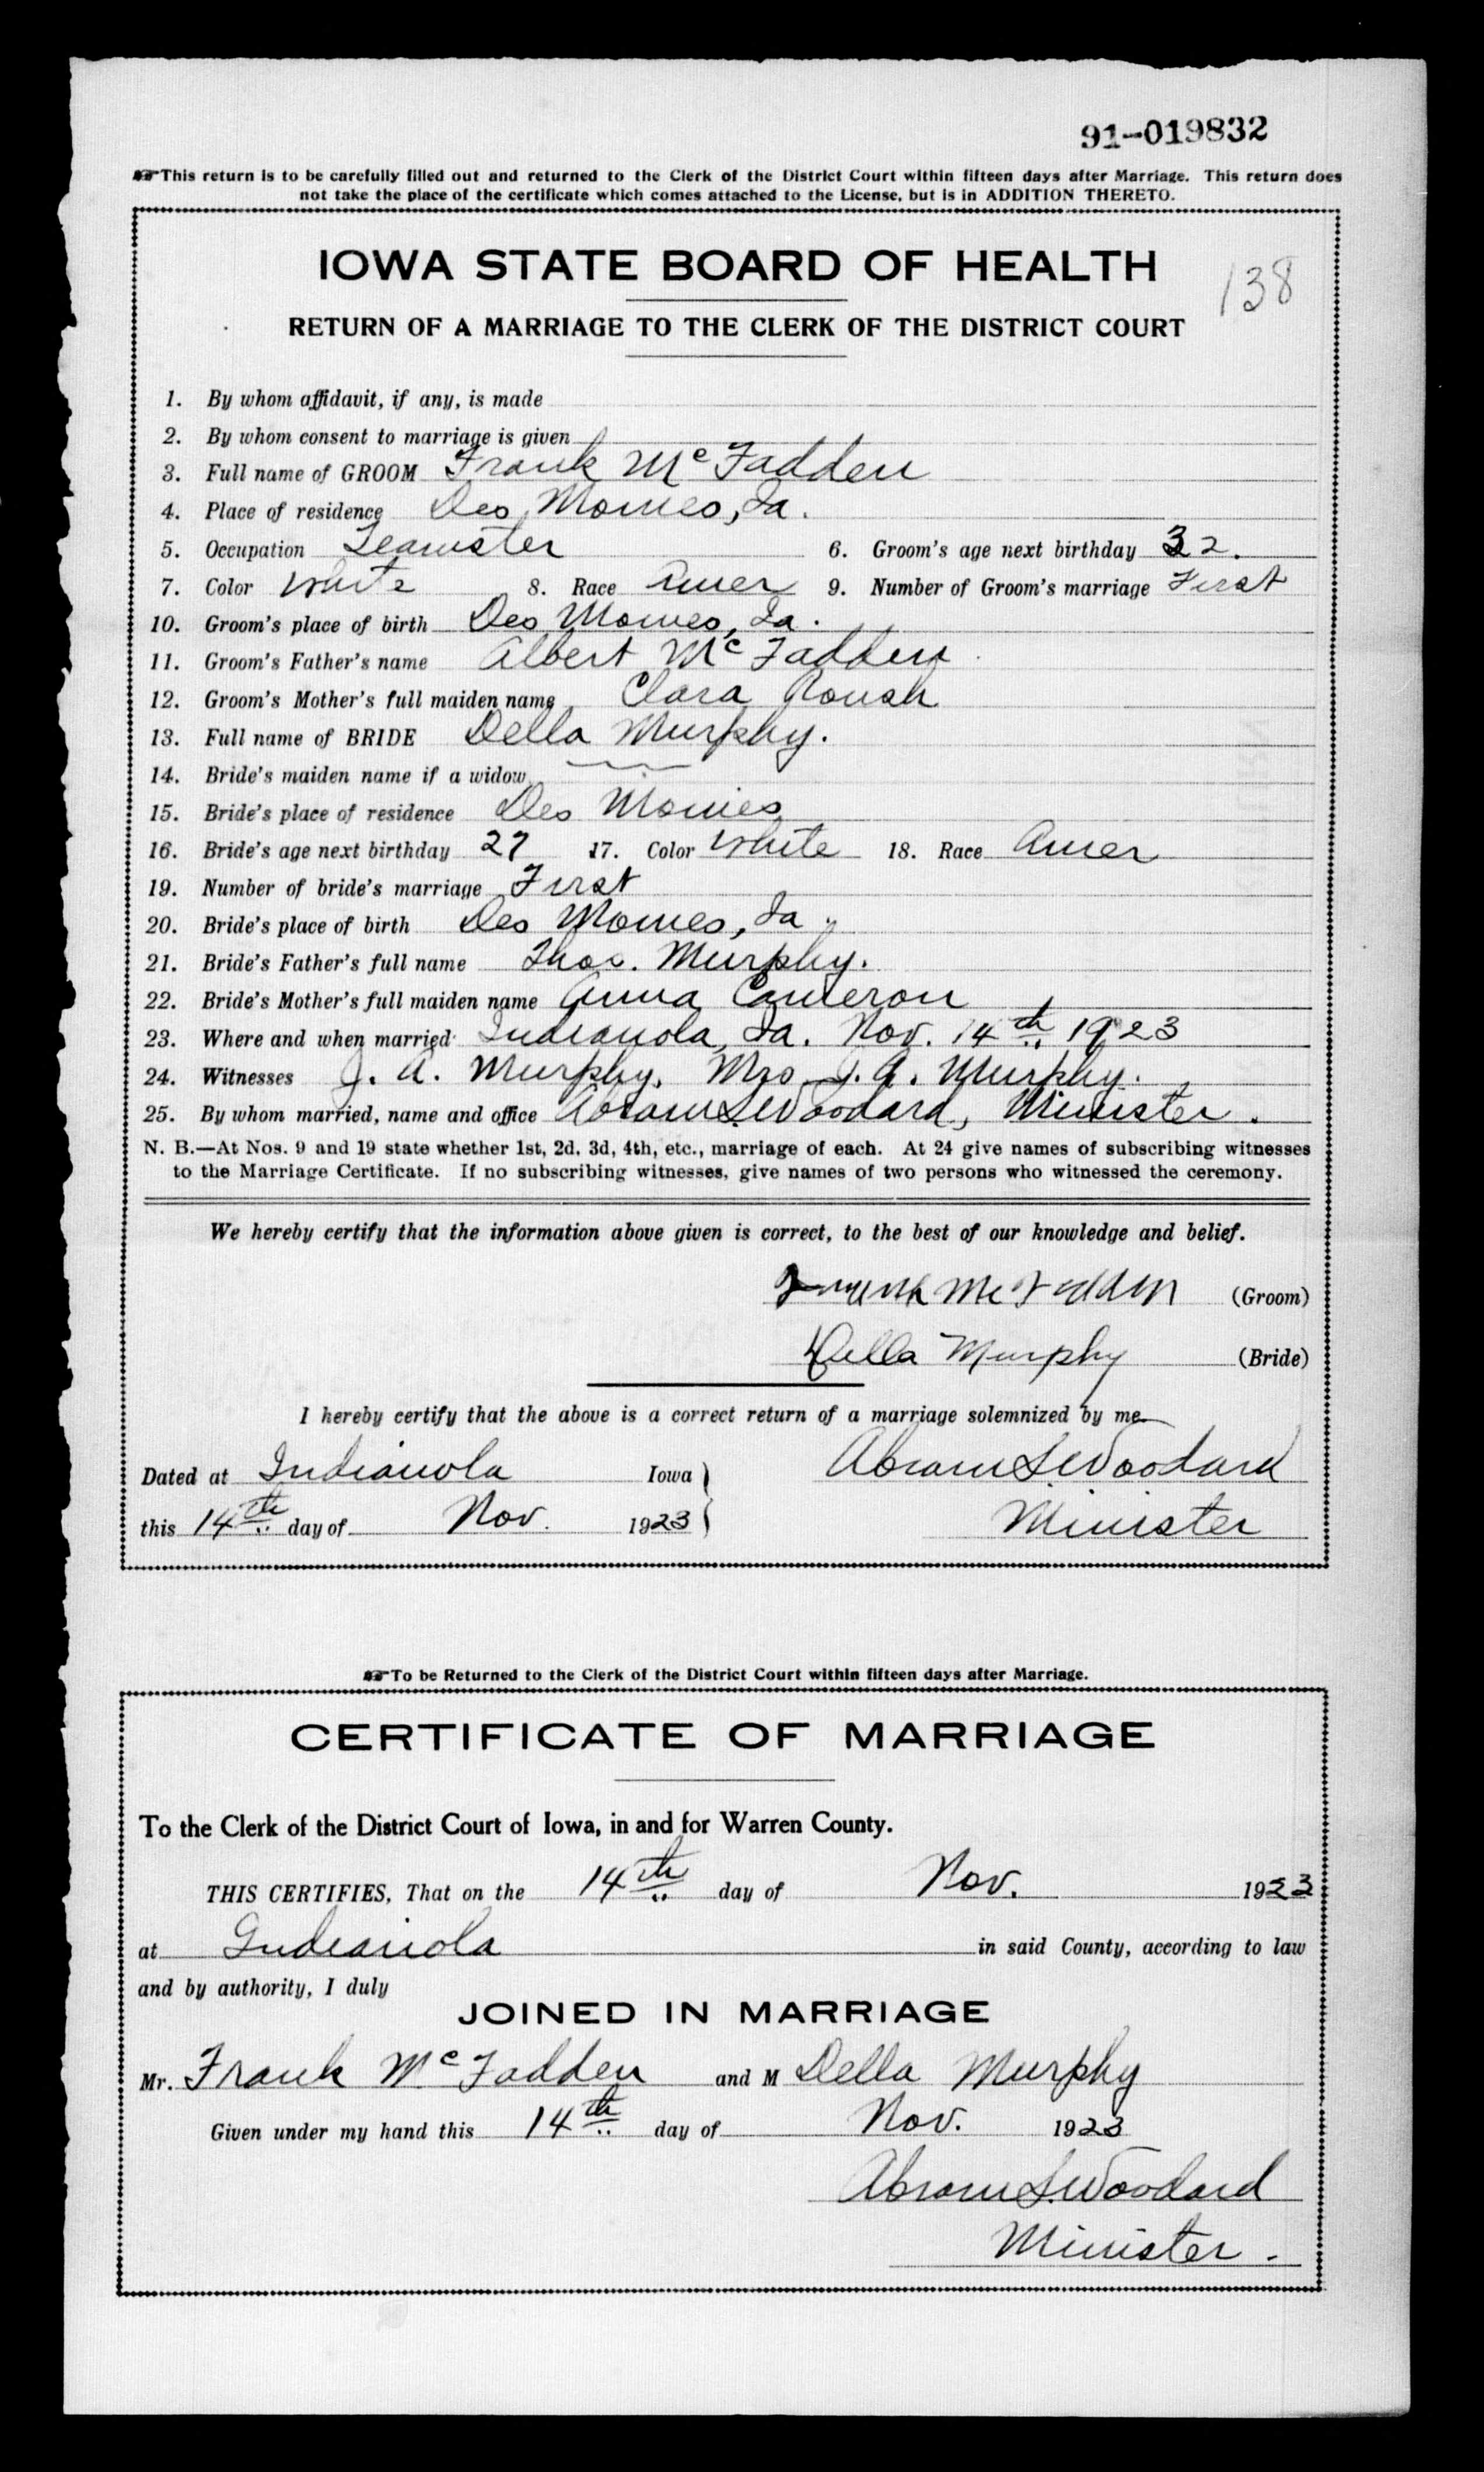 91-019832
☛This return is to be carefully filled out and returned to the Clerk of the District Court within fifteen days after Marriage. This return does
not take the place of the certificate which comes attached to the License, but is in ADDITION THERETO.
IOWA STATE BOARD OF HEALTH
138
RETURN OF A MARRIAGE TO THE CLERK OF THE DISTRICT COURT
1. By whom affidavit, if any, is made
2. By whom consent to marriage is given
3. Full name of GROOM Frank McFadden
4. Place of residence Des Moines, Ia.
5. Occupation Teamster 6. Groom's age next birthday 32.
7. Color White 8. Race Amer 9. Number of Groom's marriage First
10. Groom's place of birth Des Moines, Ia.
11. Groom's Father's name Albert McFadden
12. Groom's Mother's full maiden name Clara Roush
13. Full name of BRIDE Della Murphy.
14. Bride's maiden name if a widow
15. Bride's place of residence Des Moines
16. Bride's age next birthday 27 17. Color White 18. Race Amer
19. Number of bride's marriage First
20. Bride's place of birth Des Moines, Ia.
21. Bride's Father's full name Thos. Murphy.
22. Bride's Mother's full maiden name Anna Cameron
23. Where and when married Indianola, Ia. Nov. 14th 1923
24. Witnesses J. A. Murphy, Mrs J. A. Murphy.
25. By whom married, name and office Abram S. Woodard, Minister.
N. B.—At Nos. 9 and 19 state whether 1st, 2d, 3d, 4th, etc., marriage of each. At 24 give names of subscribing witnesses
to the Marriage Certificate. If no subscribing witnesses, give names of two persons who witnessed the ceremony.
We hereby certify that the information above given is correct, to the best of our knowledge and belief.
Frank McFadden (Groom)
Della Murphy (Bride)
I hereby certify that the above is a correct return of a marriage solemnized by me
Dated at Indianola Iowa Abram S. Woodard
this 14th day of Nov. 1923 Minister
☛To be Returned to the Clerk of the District Court within fifteen days after Marriage.
CERTIFICATE OF MARRIAGE
To the Clerk of the District Court of Iowa, in and for Warren County.
THIS CERTIFIES, That on the 14th day of Nov. 1923
at Indianola in said County, according to law
and by authority, I duly
JOINED IN MARRIAGE
Mr. Frank McFadden and M Della Murphy
Given under my hand this 14th day of Nov. 1923
Abram S. Woodard
Minister.